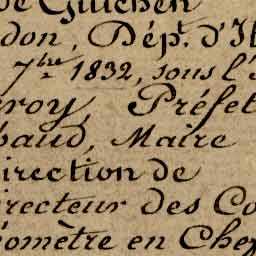 de Guichen
don, Dép.t d'Il
7bre 1832, sous l'
roy, Préfet
baud, Maire
irection de
irecteur des Co
éomètre en Chef